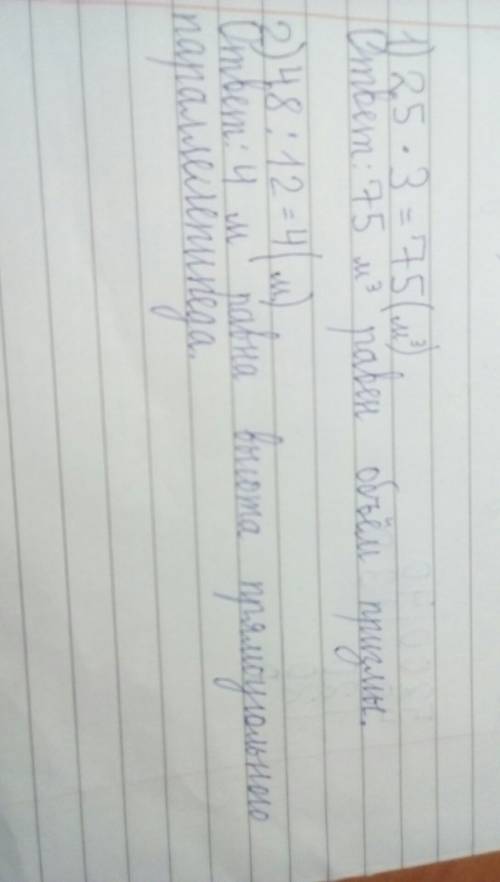 1) 25 · 3 = 75 (м³)
Ответ: 75 м³ равен объём призмы.
2) 48 : 12 = 4 (м)
Ответ: 4 м равна высота прямоугольного
параллелепипеда.